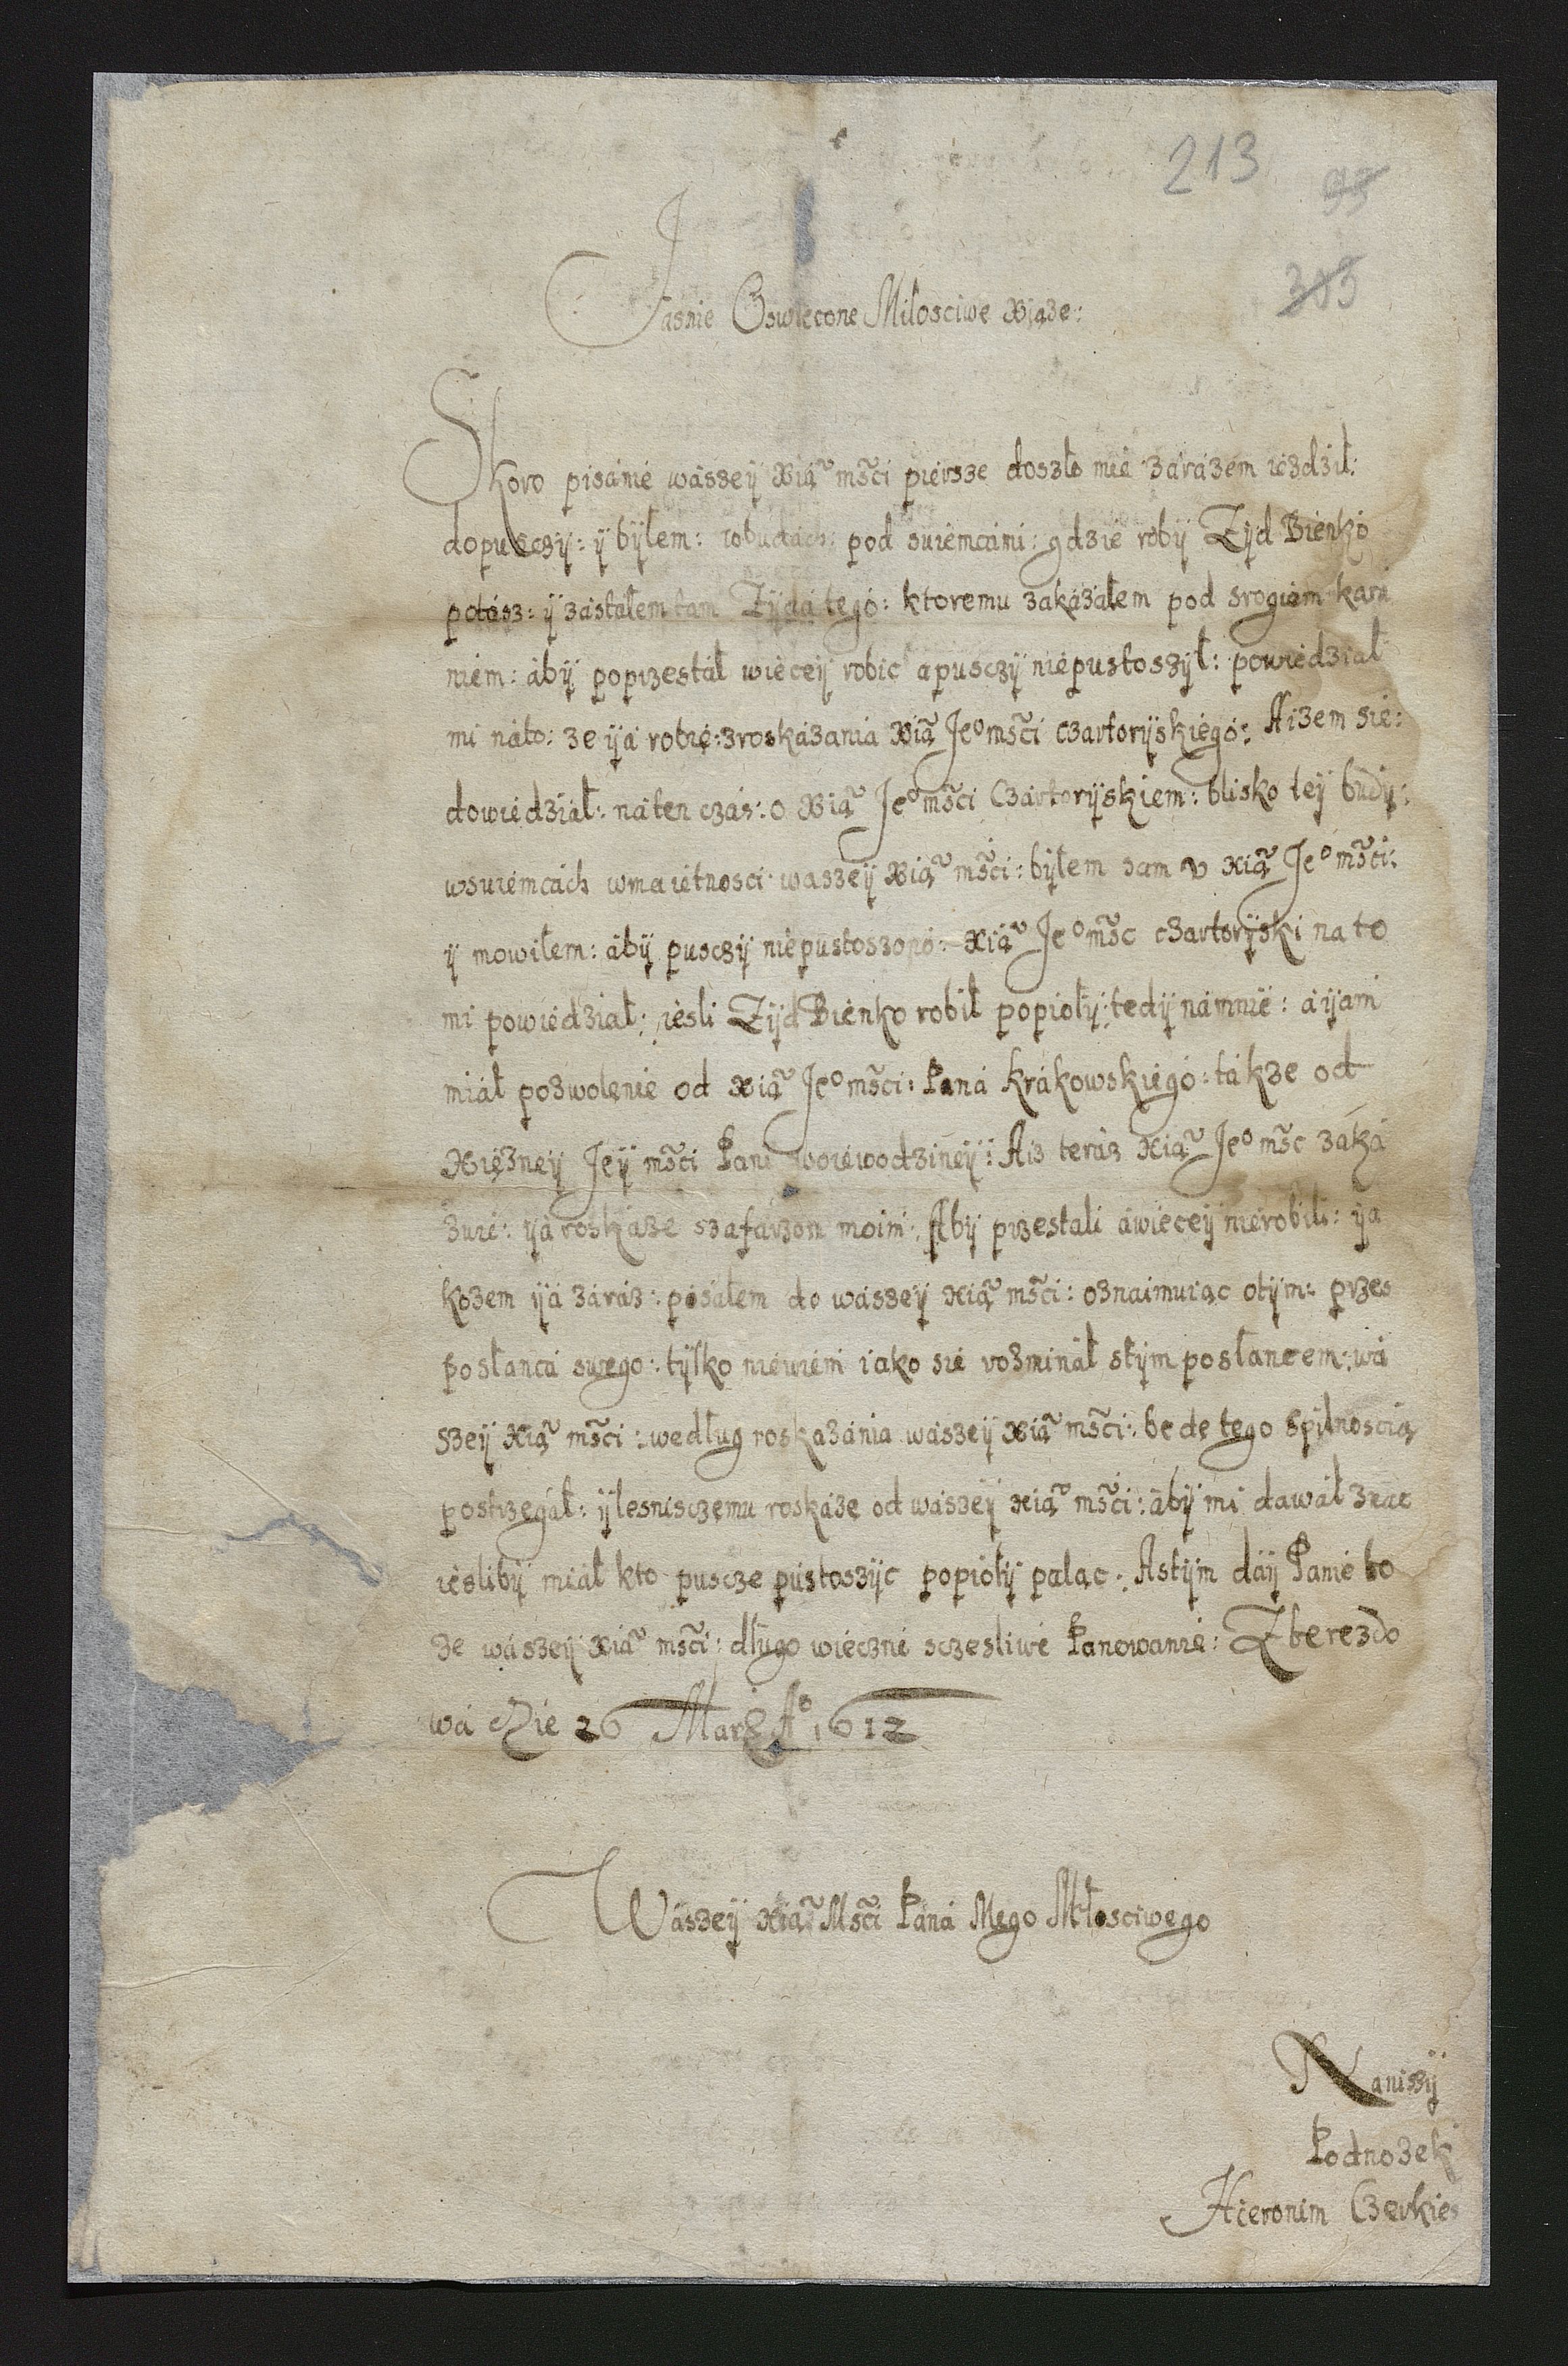 213
95
305
Jasnie Oswiecone Miłosciwe xiąze:
Skoro pisanie wászeÿ xią͂ ms͂ci piersze doszło mie zárázem iezdził:
dopusczÿ: ÿ bÿłem: wbudách: pod suiemcámi: gdzie robÿ Zÿd Bienko
potász: ÿ zástałem tam Zÿdá tego: ktoremu zakázałem pod srogiem kará
niem: ábÿ poprzestał wieceÿ robic apusczÿ niepustoszÿł: powiedział
mi náto: ze ÿá robie: zroskázánia xią͂ Jeᵒ ms͂ci czartorÿskiego: Aizem sie:
dowiedział: náten czás: o xią͂ Jeᵒ ms͂ci Czartorÿskiem: blisko teÿ budÿ:
wsuiemcách wmaietnosci waszeÿ xią͂ ms͂ci: bÿłem sam v xią͂ Jeᵒ ms͂ci:
ÿ mowiłem: ábÿ pusczÿ niepustoszono: xią͂ Jeᵒ ms͂c czartorÿski na to
mi powiedział: iesli Zÿd Bienko robił popiołÿ: tedÿ námnie: á ÿam
miał pozwolenie od xią͂ Jeᵒ ms͂ci: Paná krákowskiego: tákze od
xięzneÿ Jeÿ ms͂ci Pani woiewodzineÿ: Aiz teráz xią͂ Jeᵒ ms͂c záká
zuie: ÿá roskáze szafarzom moim: Abÿ przestali áwieceÿ nierobili: ÿa
kozem ÿá záráz: pisałem do wászeÿ xią͂ ms͂ci: oznaimuiąc otÿm: przes
posłancá swego: tÿlko niewiem iako sie rozminał stÿm posłancem: wá
szeÿ xią͂ ms͂ci: według roskazánia wászeÿ xią͂ ms͂ci: bede tego spilnoscią
postrzegał: ÿ lesnisczemu roskáze od wászeÿ xią͂ ms͂ci: ábÿ mi dawał znac
ieslibÿ miał kto puscze pustoszÿc popiołÿ paląc: Astÿm dáÿ Panie bo
ze wászeÿ xią͂ ms͂ci: długo wieczne sczesliwe Panowanie: Zberezdo
wá Die 26 Marÿ Aᵒ 1612
Wászeÿ xią͂ Ms͂ci Páná Mego Młosciwego
Naniszÿ
Podnozek
Hieronim Czerkies